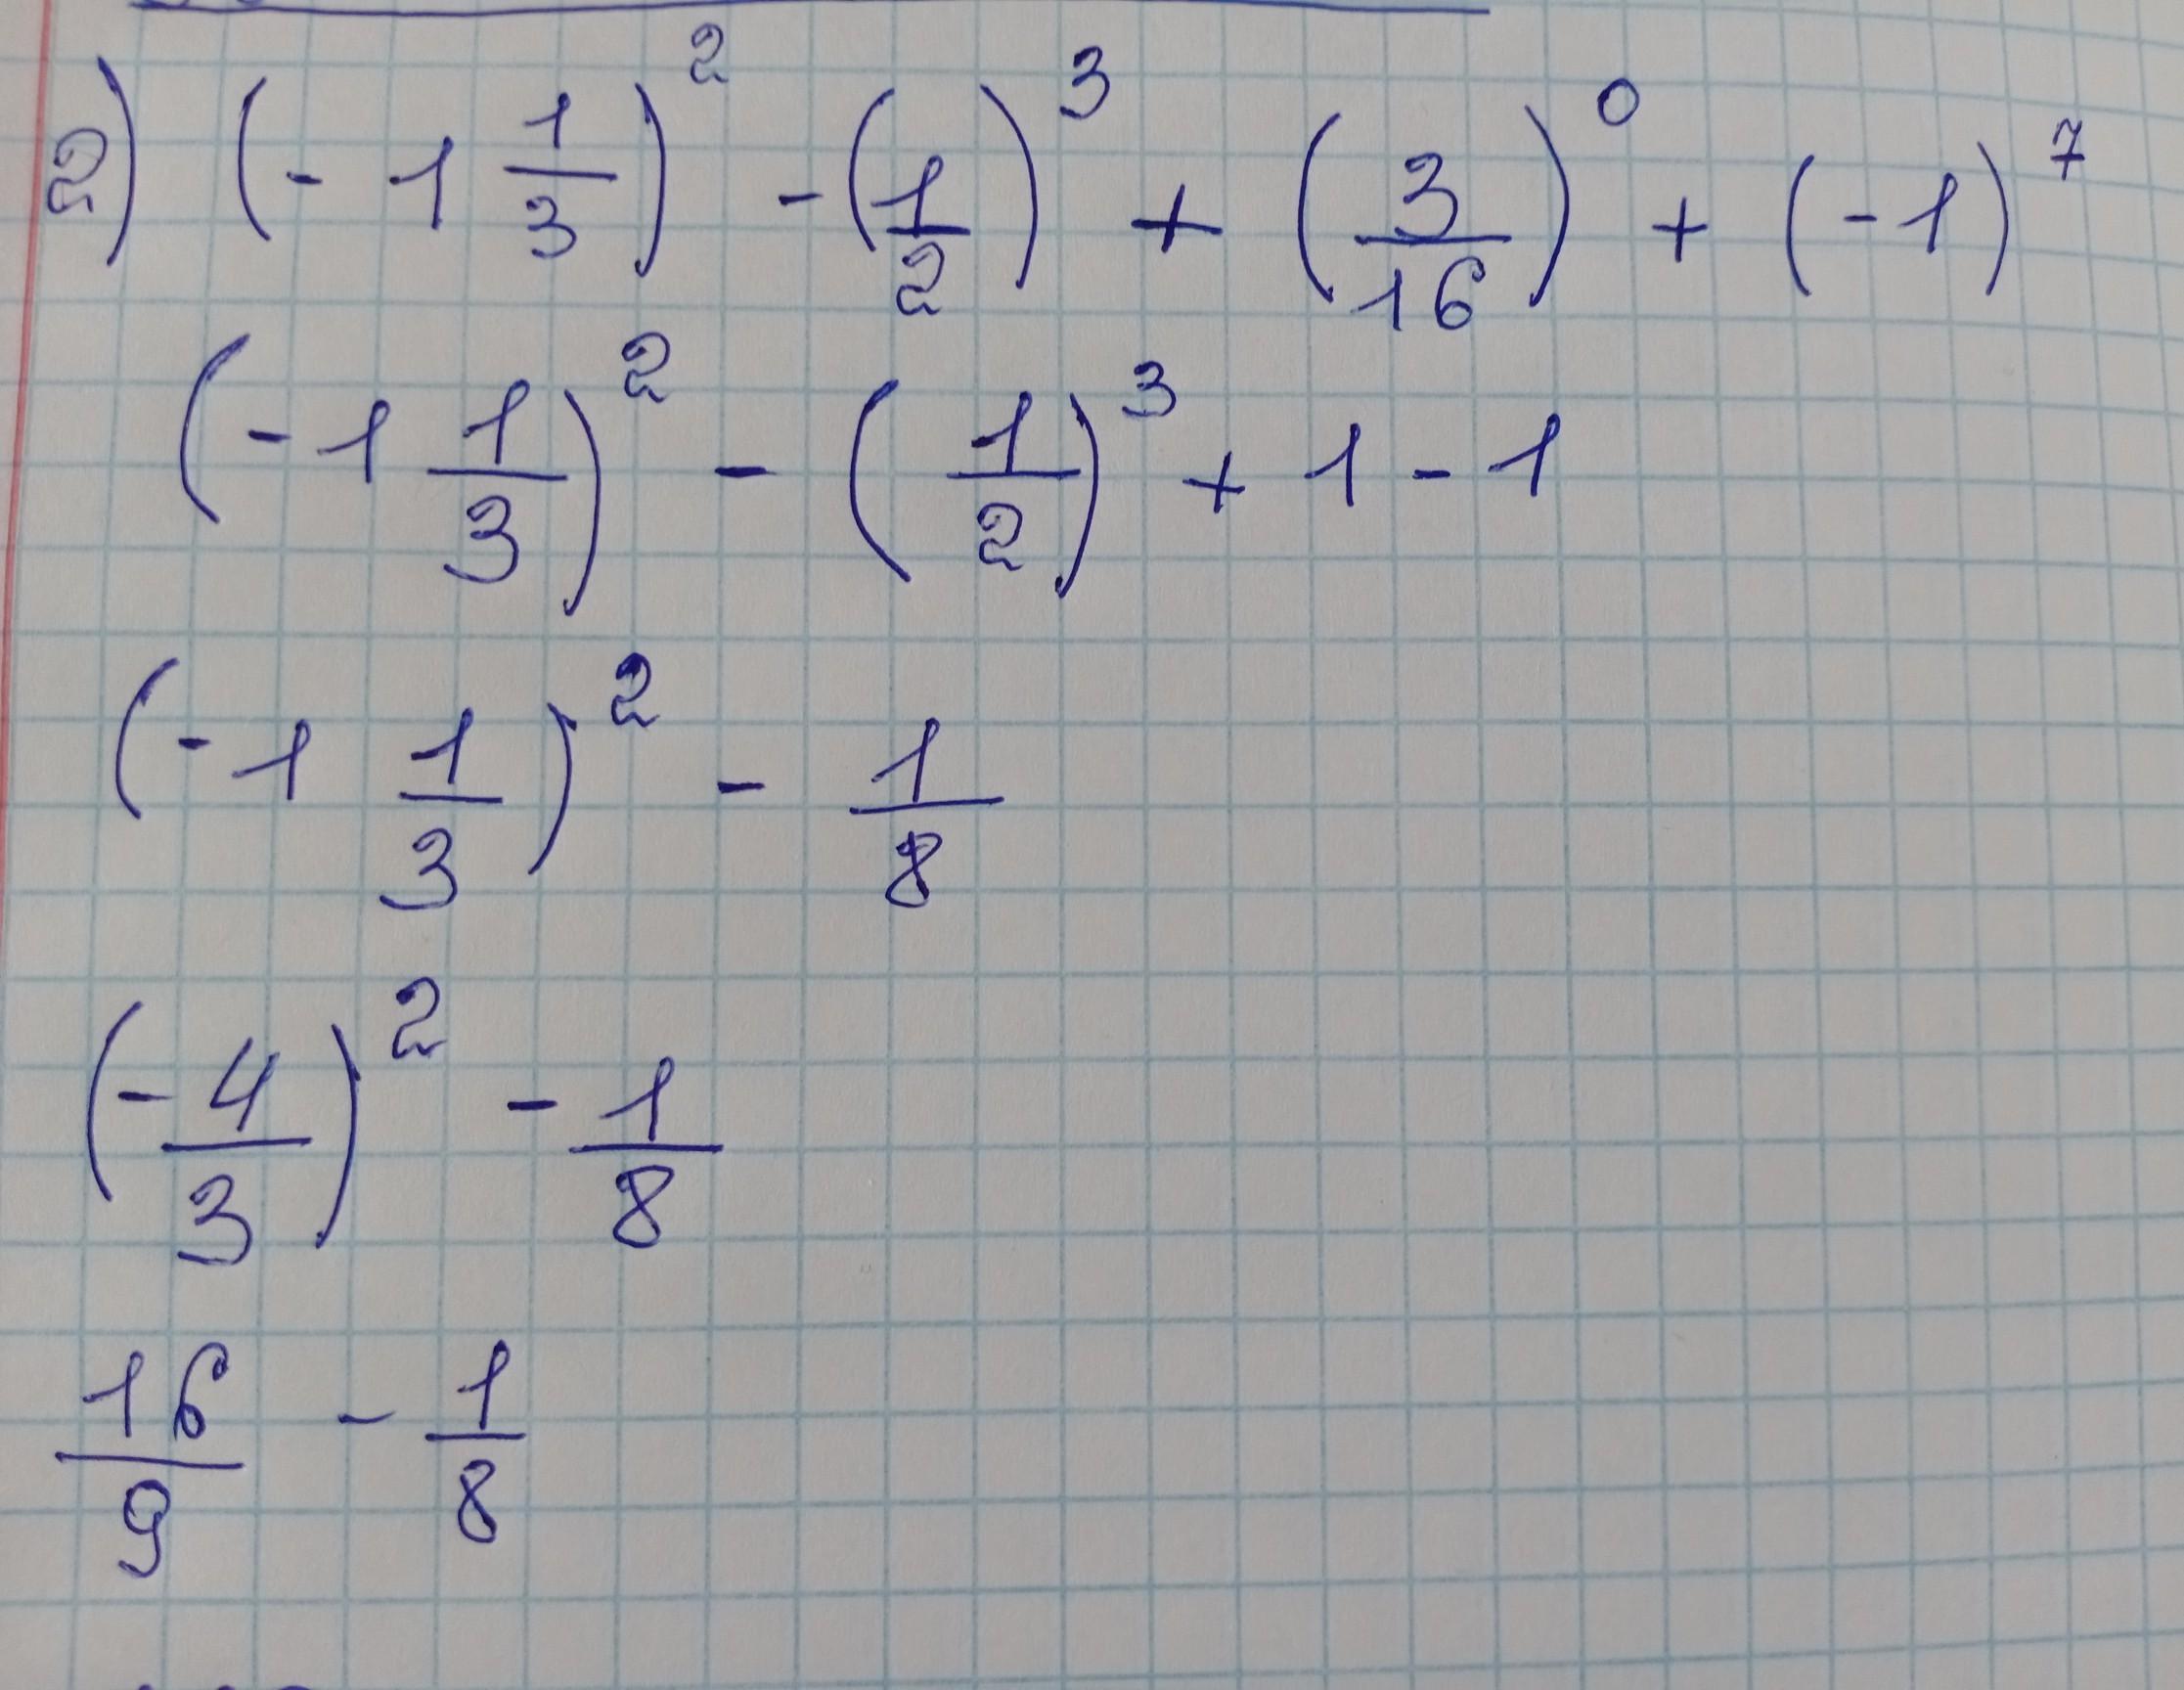 2) (-1 1/3)² - (1/2)³ + (3/16)⁰ + (-1)⁷
(-1 1/3)² - (1/2)³ + 1 - 1
(-1 1/3)² - 1/8
(-4/3)² - 1/8
16/9 - 1/8